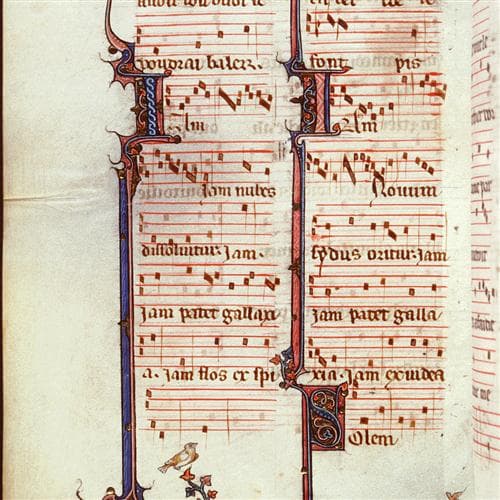 voudrai baler.
IAm
Jam nubes
dissoluitur. Jam
Jam patet gallaxi
a. Jam flos ex spi
sont pis
IAm
Nouum
sydus oritur. Jam
Jam patet galla
xia. Jam ex iudea
SOlem